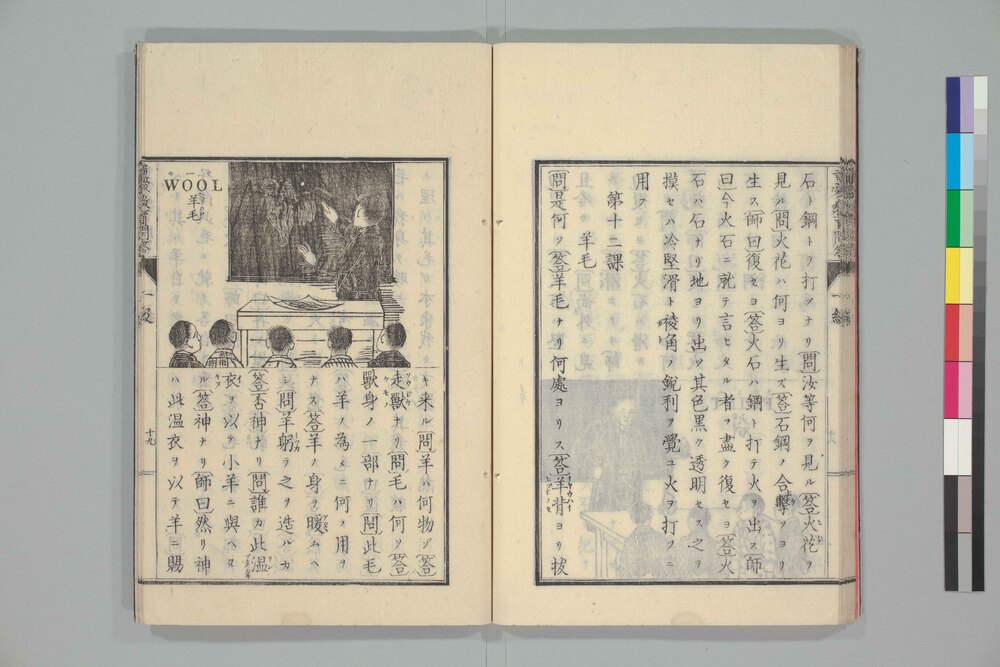 石ト鋼トヲ打ツナリ問汝等何ヲ見ル答火花ヲ
見ル問火花ハ何ヨリ生ズ答石鋼ノ合擊ヨリ
生ス師曰復セヨ答火石ハ鋼ト打テ火ヲ出ス師
曰今火石ニ就テ言ヒタル者ヲ盡ク復セヨ答火
石ハ石ナリ地ヨリ出ツ其色黒ク透明セス之ヲ
摸セハ冷堅滑ト稜角ノ鋭利ヲ覺ユ火ヲ打ツニ
用フ
第十二課
羊毛
問是何ソ答羊毛ナリ何處ヨリス答羊背ヨリ抜
一編
WOOL
羊毛
キ来ル問羊ハ何物ゾ答
走獸ナリ問毛ハ何ソ答
獸身ノ一部ナリ問此毛
ハ羊ノ為メニ何ノ用ヲ
ナス答羊ノ身ヲ暖ムヘ
シ問羊躬テ之ヲ造ルカ
答否神ナリ問誰カ此温
衣ヲ以テ小羊ニ與ヘタ
ル答神ナリ師曰然リ神
ハ此温衣ヲ以テ羊ニ賜
十九